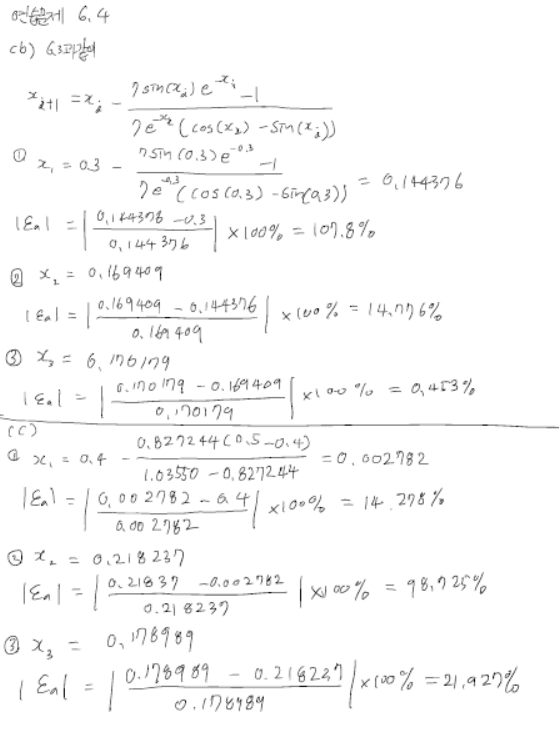 연습문제 6.4
(b) 6.3과같이
x_{i+1} = x_i - \frac{7sin(x_i)e^{-x_i}-1}{7e^{-x_i}(cos(x_i)-sin(x_i))}
① x_1 = 0.3 - \frac{7sin(0.3)e^{-0.3}-1}{7e^{-0.3}(cos(0.3)-sin(0.3))} = 0.144376
|ε_a| = |\frac{0.144376-0.3}{0.144376}| × 100% = 107.8%
② x_2 = 0.169409
|ε_a| = |\frac{0.169409-0.144376}{0.169409}| × 100% = 14.776%
③ x_3 = 0.170179
|ε_a| = |\frac{0.170179-0.169409}{0.170179}| × 100% = 0.453%
(c)
① x_1 = 0.4 - \frac{0.827244(0.5-0.4)}{1.03550-0.827244} = 0.002782
|ε_a| = |\frac{0.002782-0.4}{0.002782}| × 100% = 14.278%
② x_2 = 0.218237
|ε_a| = |\frac{0.21837-0.002782}{0.218237}| × 100% = 98.725%
③ x_3 = 0.178989
|ε_a| = |\frac{0.178989-0.218237}{0.178989}| × 100% = 21.927%